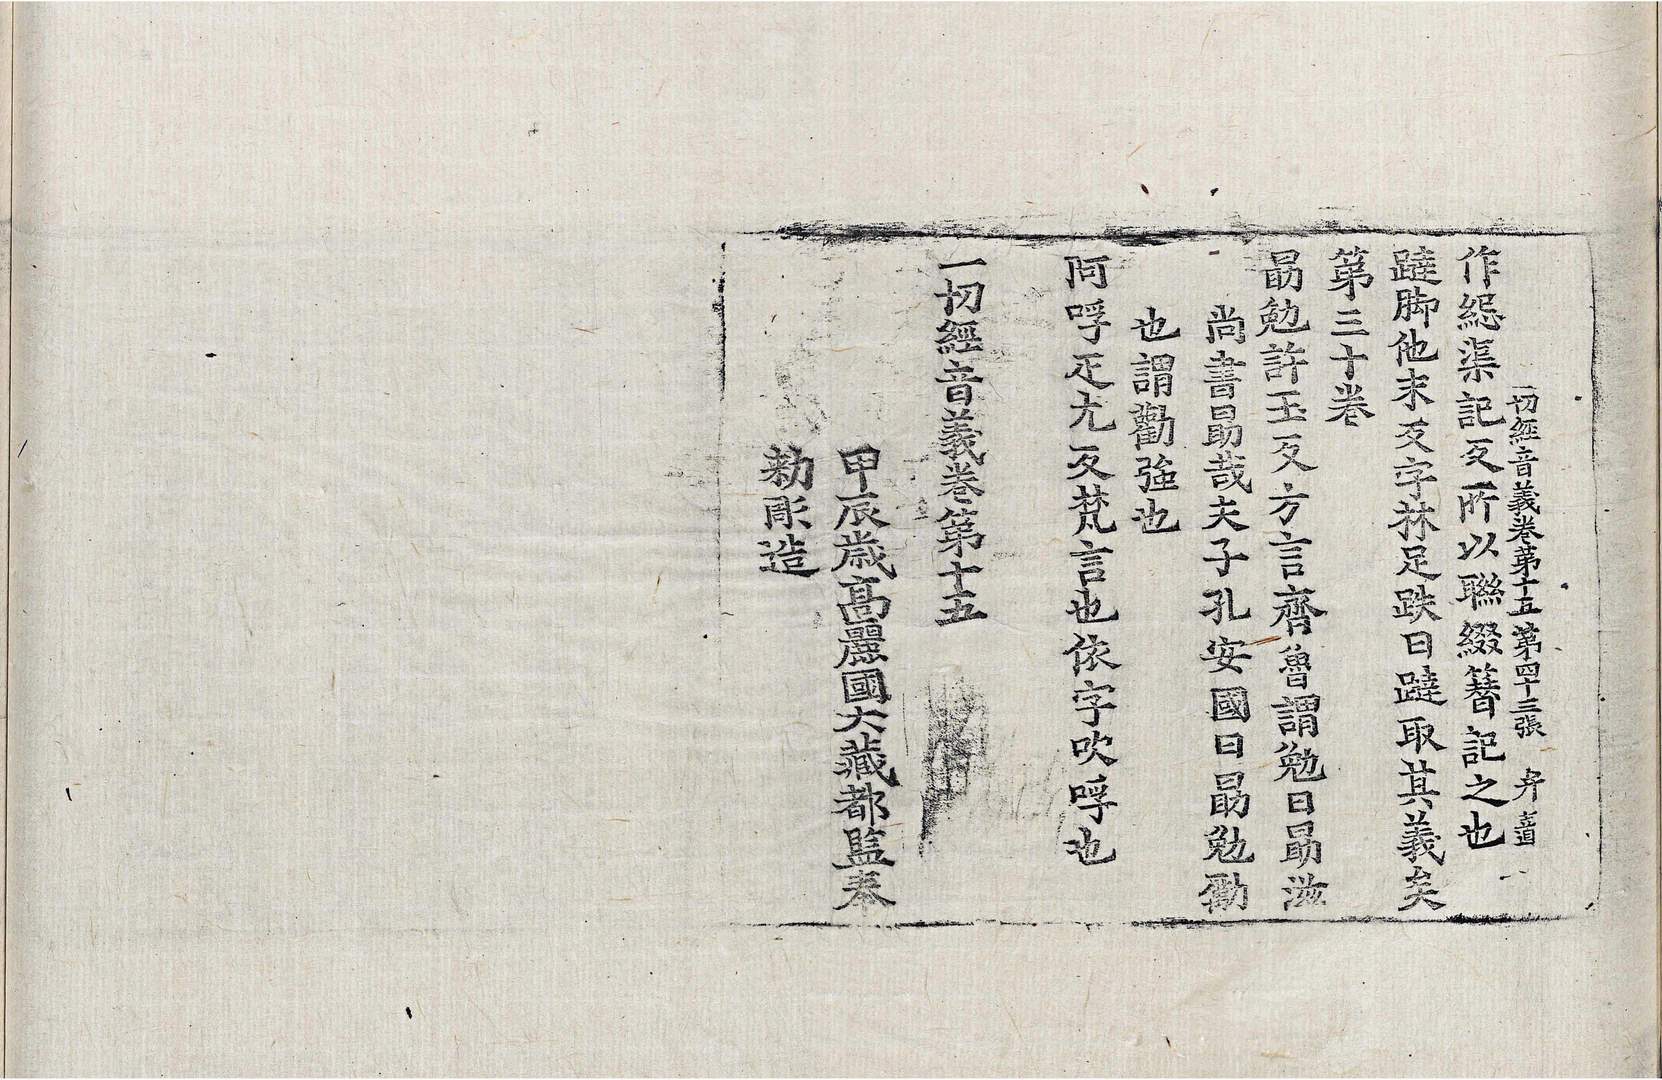 一切經音義卷第十五 第四十三張 弁
作綛渠記反所以聯綴簪記之也
躂脚他末反字林足跌曰躂取其義矣
第三十卷
勗勉許玉反方言齊魯謂勉曰勗滋
尚書勗哉夫子孔安國曰勗勉勵
也謂勸強也
阿呼疋尤反梵言也依字吹呼也
一切經音義卷第十五
甲辰歳高麗國大藏都監奉
勅彫造